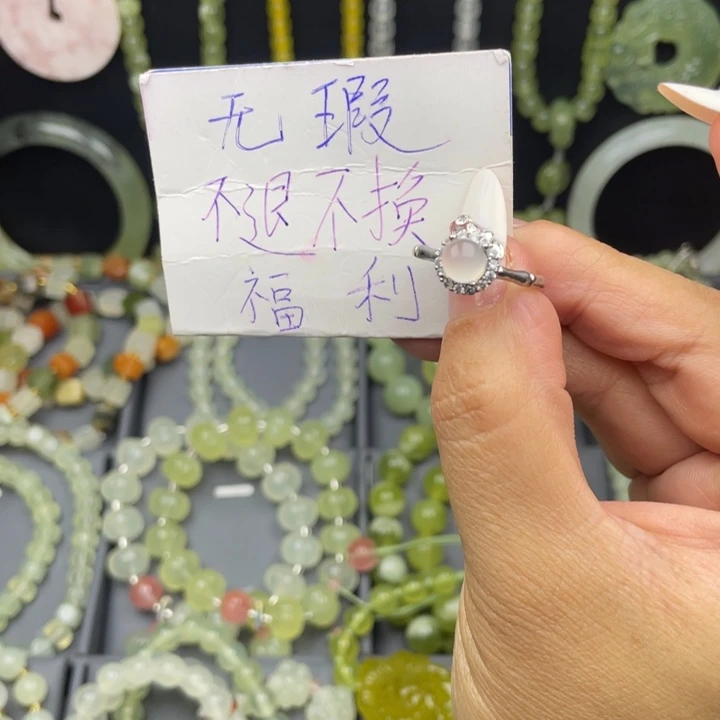 无瑕
不退不换
福利